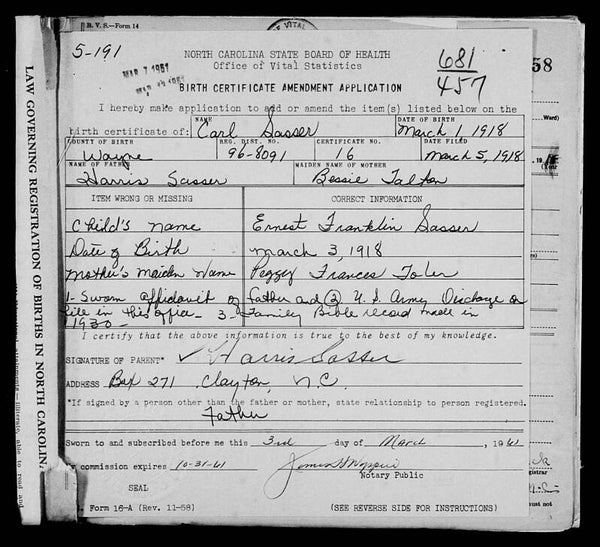 B. V. S.—Form 14
5-191
MAR 7 1961
NORTH CAROLINA STATE BOARD OF HEALTH
Office of Vital Statistics
681
457
58
BIRTH CERTIFICATE AMENDMENT APPLICATION
I hereby make application to add or amend the item(s) listed below on the
birth certificate of:
NAME
Carl Sasser
DATE OF BIRTH
March 1, 1918
COUNTY OF BIRTH
Wayne
REG. DIST. NO.
96-8091
CERTIFICATE NO.
16
DATE FILED
March 5, 1918
NAME OF FATHER
Harris Sasser
MAIDEN NAME OF MOTHER
Bessie Talton
ITEM WRONG OR MISSING
CORRECT INFORMATION
Child's name
Ernest Franklin Sasser
Date of Birth
March 3, 1918
Mother's Maiden Name
Peggy Frances Toler
1- Sworn Affidavit of Father and (2) U.S. Army Discharge on
file in this office - 3- Family Bible record made in
1930-
I certify that the above information is true to the best of my knowledge.
SIGNATURE OF PARENT* ✓ Harris Sasser
ADDRESS Box 271 Clayton, N.C.
*If signed by a person other than the father or mother, state relationship to person registered.
Father
Sworn to and subscribed before me this 3rd day of March, 1961
commission expires 10-31-61
Notary Public
SEAL
Form 16-A (Rev. 11-58)
(SEE REVERSE SIDE FOR INSTRUCTIONS)
LAW GOVERNING REGISTRATION OF BIRTHS IN NORTH CAROLINA
Ward)